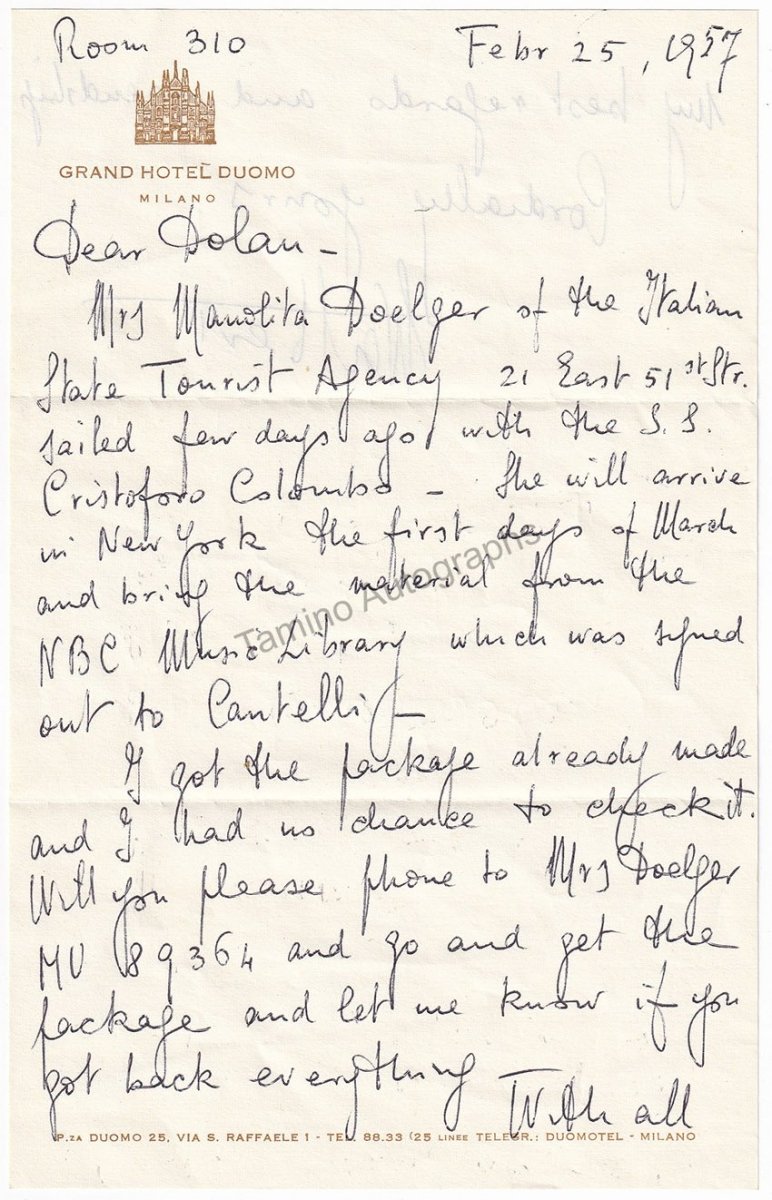 Room 310
Febr 25, 1957
GRAND HOTEL DUOMO
MILANO
Dear Dolan -
Mrs Manolita Doelger of the Italian
State Tourist Agency 21 East 51st Str.
sailed few days ago with the S.S.
Cristoforo Colombo - She will arrive
in New York the first days of March
and bring the material from the
NBC Music Library which was signed
out to Cantelli -
I got the package already made
and I had no chance to check it.
Will you please phone to Mrs Doelger
MU 89364 and go and get the
package and let me know if you
got back everything
With all
P.ZA DUOMO 25, VIA S. RAFFAELE 1 - TEL. 88.33 (25 LINEE TELEGR.: DUOMOTEL - MILANO
Tamino Autographs
my best regards and friendship
Cordially yours